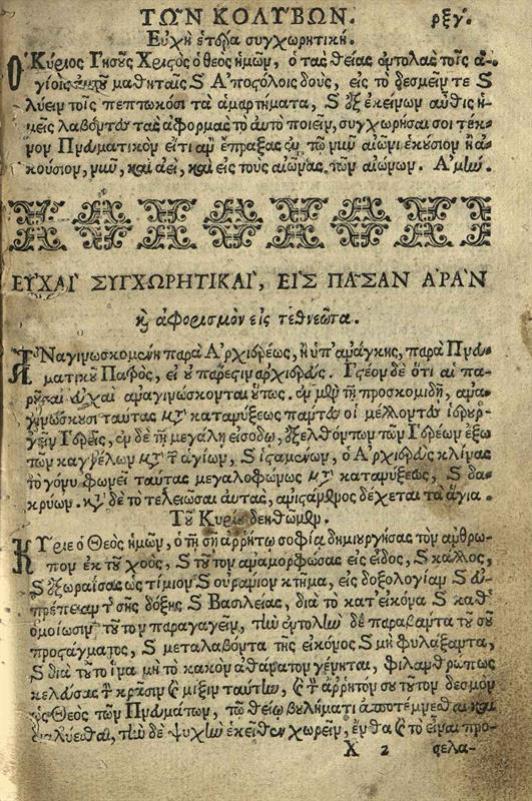 ΤΩ͂Ν ΚΟΛΥΒΩΝ. ρξγʹ.
Εὐχὴ ἑτέρα συγχωρητική.
Ὁ Κύριος Ἰησοῦς Χριστὸς ὁ θεὸς ἡμῶν, ὁ τὰς θείας ἐντολὰς τοῖς ἁ-
γίοις αὐτοῦ μαθηταῖς καὶ Ἀποστόλοις δοὺς, εἰς τὸ δεσμεῖν τε καὶ
λύειν τοῖς πεπτωκόσι τὰ ἁμαρτήματα, καὶ ἐξ ἐκείνων αὖθις ἡ-
μεῖς λαβόντες τὰς ἀφορμὰς τὸ αὐτὸ ποιεῖν, συγχωρῆσαι σοι τέκ-
νον Πνευματικὸν εἴτι ἂν ἔπραξας ἐν τῷ νῦν αἰῶνι ἑκούσιον ἢ ἀ-
κούσιον, νῦν, καὶ ἀεὶ, καὶ εἰς τοὺς αἰῶνας τῶν αἰώνων. Ἀμήν.
ΕΥΧΑΙ ΣΥΓΧΩΡΗΤΙΚΑΙ, ΕΙΣ ΠΑ͂ΣΑΝ ΑΡΑΝ
καὶ ἀφορισμὸν εἰς τεθνεῶτα.
Ἀναγινωσκομένη παρὰ Ἀρχιερέως, ἢ ὑπ' ἀνάγκης, παρὰ Πνευ-
ματικοῦ Πατρὸς, εἰ οὐ πάρεστιν ἀρχιερεύς. Ἰστέον δὲ ὅτι αἱ πα-
ροῦσαι εὐχαὶ ἀναγινώσκονται οὕτως. ἐν μὲν τῇ προσκομιδῇ, ἀνα-
γινώσκουσι ταύτας μετὰ κατανύξεως πάντες οἱ μέλλοντες ἱερουρ-
γεῖν Ἱερεῖς, ἐν δὲ τῇ μεγάλῃ εἰσόδῳ, ἐξελθόντων τῶν Ἱερέων ἔξω
τῶν καγγέλων μετὰ τῶν ἁγίων, καὶ ἱσταμένων, ὁ Ἀρχιερεὺς κλίνας
τὸ γόνυ φωνεῖ ταύτας μεγαλοφώνως μετὰ κατανύξεως, καὶ δα-
κρύων. μετὰ δὲ τὸ τελειῶσαι αὐτὰς, ἀνιστάμενος δέχεται τὰ ἅγια.
Τοῦ Κυρίου δεηθῶμεν.
Κύριε ὁ Θεὸς ἡμῶν, ὁ τῇ σῇ ἀρρήτῳ σοφίᾳ δημιουργήσας τὸν ἄνθρω-
πον ἐκ τοῦ χοὸς, καὶ τοῦτον ἀναμορφώσας εἰς εἶδος, καὶ κάλλος,
καὶ ἐξωραΐσας ὡς τίμιον καὶ οὐράνιον κτῆμα, εἰς δοξολογίαν καὶ εὐ-
πρέπειαν τῆς σῆς δόξης καὶ Βασιλείας, διὰ τὸ κατ' εἰκόνα καὶ καθ'
ὁμοίωσιν τοῦτον παραγαγεῖν, τὴν ἐντολὴν δὲ παραβάντα τοῦ σοῦ
προστάγματος, καὶ μεταλαβόντα τῆς εἰκόνος καὶ μὴ φυλάξαντα,
καὶ διὰ τοῦτο ἵνα μὴ τὸ κακὸν ἀθάνατον γένηται, φιλανθρώπως
κελεύσας τὴν κρᾶσιν καὶ μίξιν ταύτην, καὶ τὸν ἄρρητόν σου τοῦτον δεσμὸν
ὡς Θεὸς τῶν Πνευμάτων, τῷ θείῳ βουλήματι ἀποτέμνεσθαι καὶ
διαλύεσθαι, τὴν δὲ ψυχὴν ἐκεῖθεν χωρεῖν, ἔνθα καὶ τὸ εἶναι προ-
Χ 2 σελα-